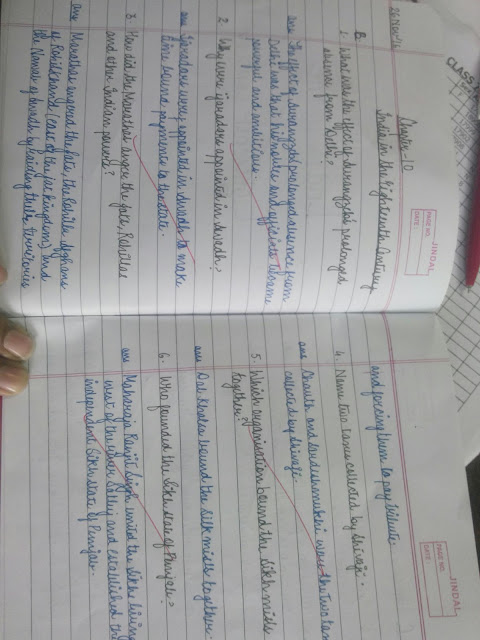 CLASS
26 Nov 16
PAGE NO.
DATE
JINDAL
Chapter-10
India in the Eighteenth Century
B.
1. What was the effect of Aurangzeb's prolonged
absence from Delhi?
ans The effect of Aurangzeb's prolonged absence from
Delhi was that his nobles and officials became
powerful and ambitious.
2. Why were ijaradars appointed in Awadh?
ans Ijaradars were appointed in Awadh to make
time bound payments to the state.
3. How did the Marathas anger the Jats, Rohillas
and other Indian powers?
ans Marathas angered the Jats, the Rohilla Afghans
of Rohilkhand (east of the Jat kingdom) and
the Nawab of Awadh by raiding their territories
PAGE NO.
DATE
JINDAL
and forcing them to pay tribute.
4. Name two taxes collected by Shivaji.
ans Chauth and sardeshmukhi were the two tax
collected by Shivaji.
5. Which organisation bound the Sikh misls
together?
ans Dal Khalsa bound the Sikh misls together.
6. Who founded the Sikh state of Punjab?
ans Maharaja Ranjit Singh united the Sikhs living
west of the river Sutlej and established the
independent Sikh state of Punjab.